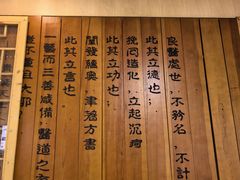 良醫處世，不矜名，不計
此其立德也；
挽回造化，立起沉疴
此其立功也；
闡發蘊奧，聿著方書
此其立言也；
一藝而三善咸備，醫道之